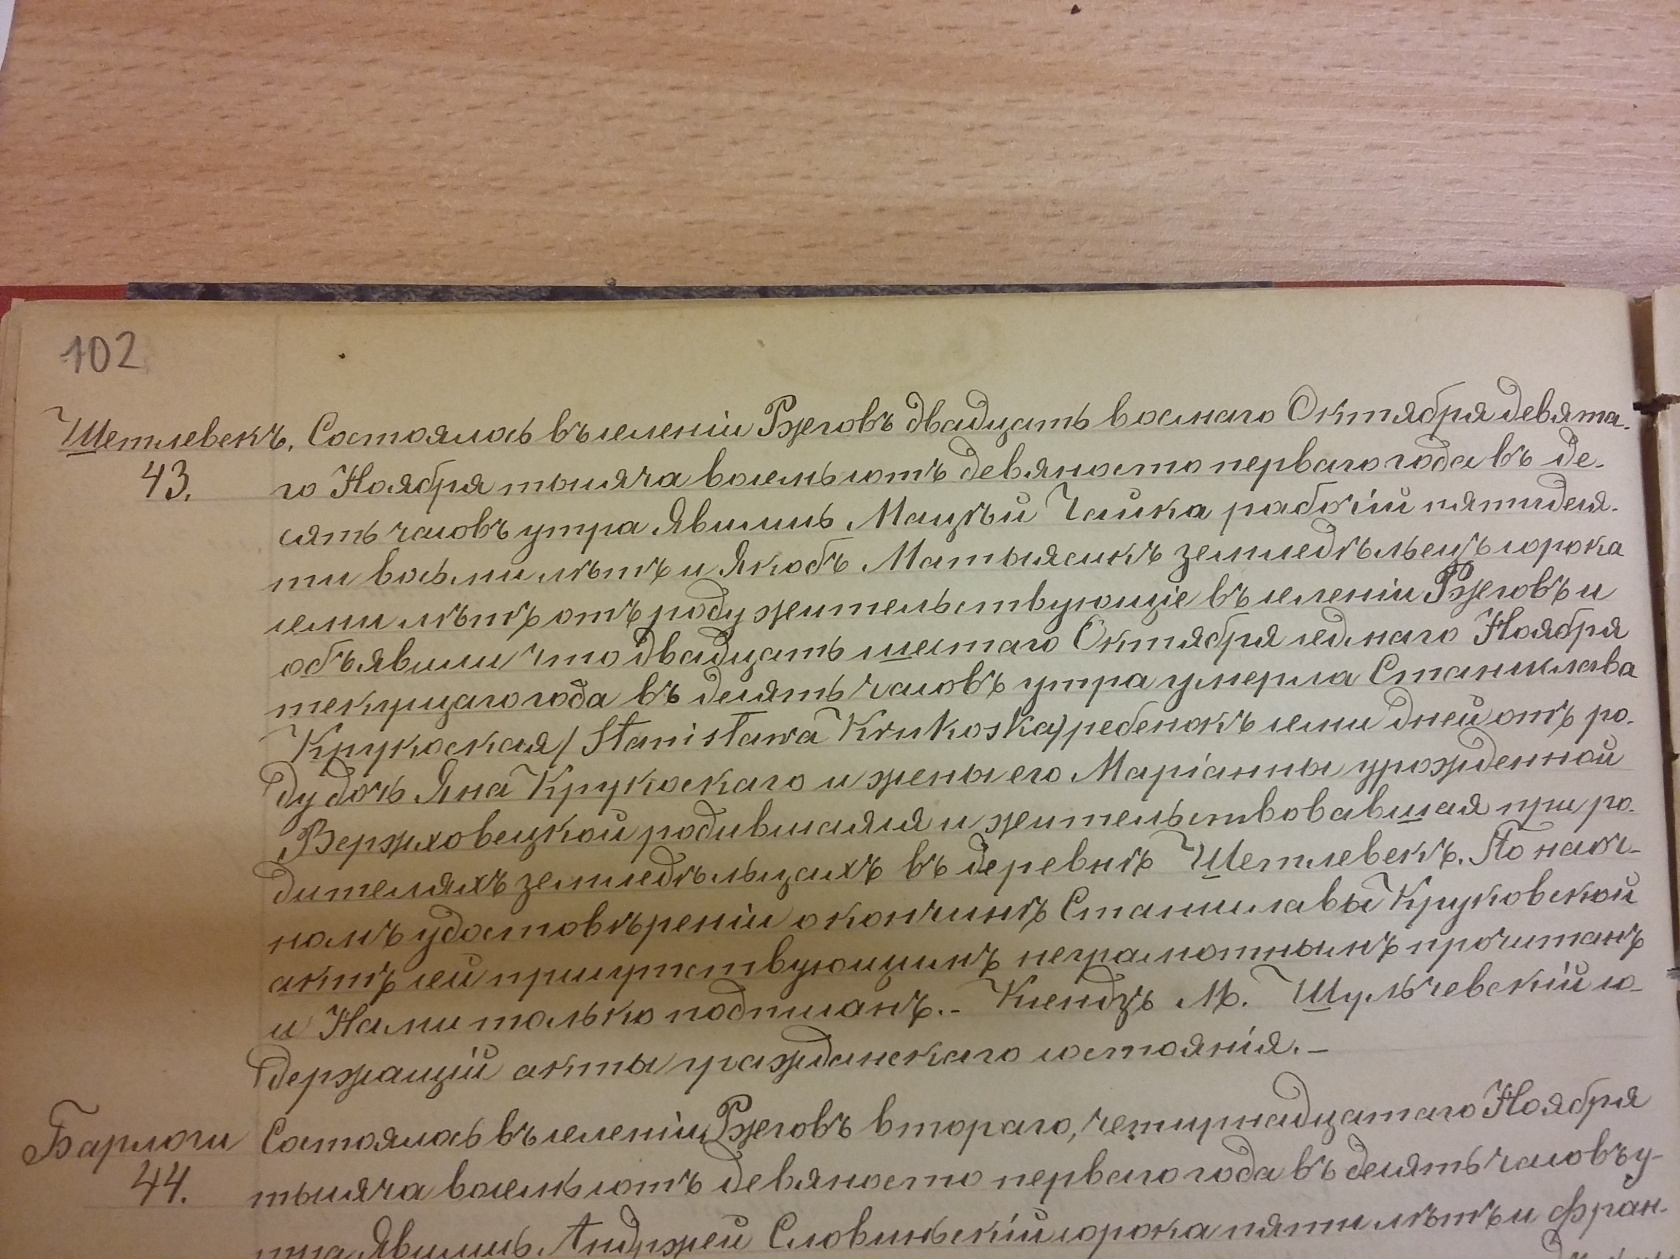 102
Шетлевекъ. Состоялось въ селеніи Ржговъ двадцать восмаго Октября девята-
43. го Ноября тысяча восемьсотъ девяносто перваго года въ де-
сять часовъ утра Явились Мацѣй Чайка рабочій пятидеся-
ти восьми лѣтъ и Якобъ Матыясикъ земледѣлецъ сорока
семи лѣтъ отъ роду жительствующіе въ селеніи Ржговъ и
объявили что двадцать шестаго Октября седмаго Ноября
текущаго года въ десять часовъ утра умерла Станислава
Крукоская /Stanisława Krukoska/ ребенокъ семи дней отъ ро-
ду дочь Яна Крукоскаго и жены его Маріанны урожденной
Вержховецкой родившаяся и жительствовавшая при ро-
дителяхъ земледѣльцахъ въ деревнѣ Шетлевекъ. По наоч-
номъ удостовѣреніи о кончинѣ Станиславы Круковской
актъ сей присутствующимъ неграмотнымъ прочитанъ
и Нами только подписанъ.- Ксендзъ М. Шульчевскій со-
держащій акты гражданскаго состоянія.-
Барлоги Состоялось въ селеніи Ржговъ втораго, четырнадцатаго Ноября
44. тысяча восемьсотъ девяносто перваго года въ десять часовъ у-
тра Явились Андржей Словинскій сорока пяти лѣтъ и Фран-